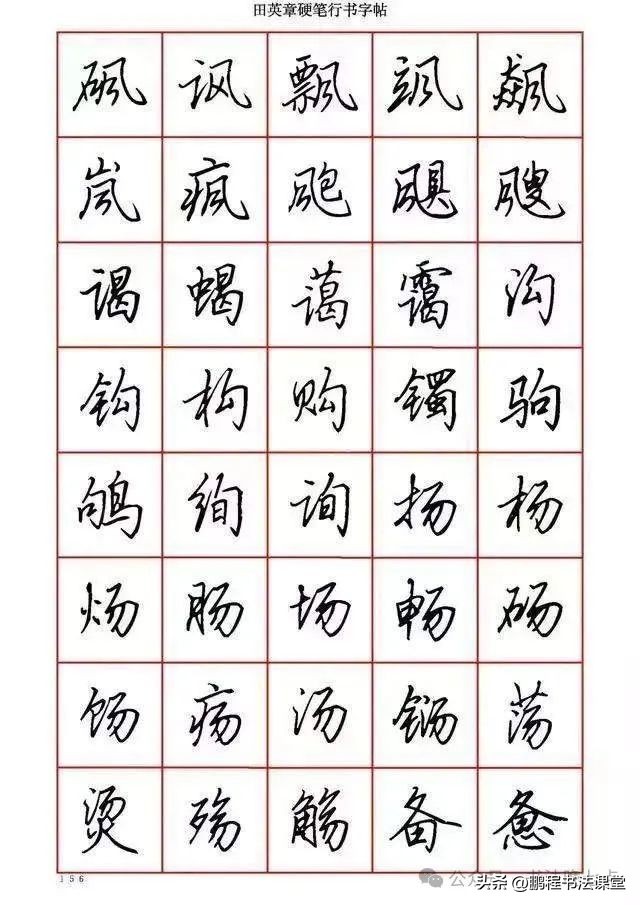 田英章硬笔行书字帖
砜 讽 飘 飒 飙
岚 疯 飑 飓 飕
谒 蝎 蔼 霭 沟
钩 构 购 镯 驹
鸲 绚 询 扬 杨
炀 肠 场 畅 砀
饧 疡 汤 铴 荡
烫 殇 觞 备 惫
156
头条 @鹏程书法课堂